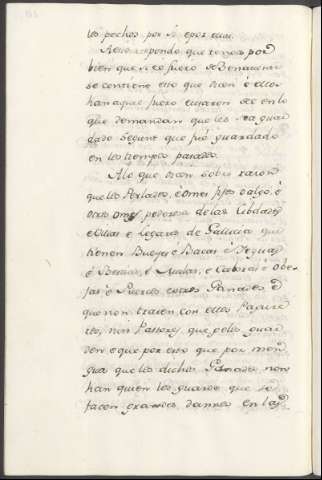 los pechos por
A esto respondo que tengo por
bien que si el fuero de Benavente
se contiene esto que dicen é ellos
han aquel fuero usaron de en lo
que demandan que les sea guar
dado segunt que fué guardado
en los tiempos pasados.
A lo que dicen sobre razon
que los Perlados, é omes fijos dalgo, é
otros omes poderosos de las Cibdades
é Villas é Logares de Galicia que
tienen Bueyes é Bacas é Yeguas
é Bestias, é Mulas, é Cabras é Obe
jas é Puercos é otros Ganados é
que non traen con ellos Pasto
res, nin Pastores que gelos guar
den é que por esto que por men
gua que los dichos Ganados non
han quien los guarde que se
facen grandes dannos en las